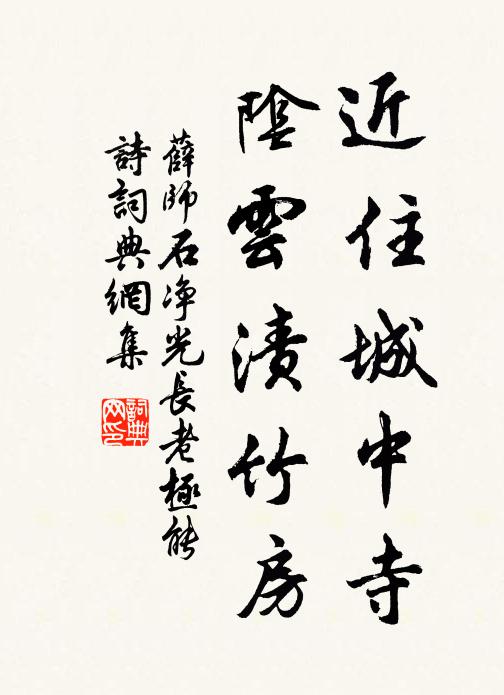 近住城中寺
陰雲漬竹房
薛師石净光長老極能
詩詞典網集
詞典網印